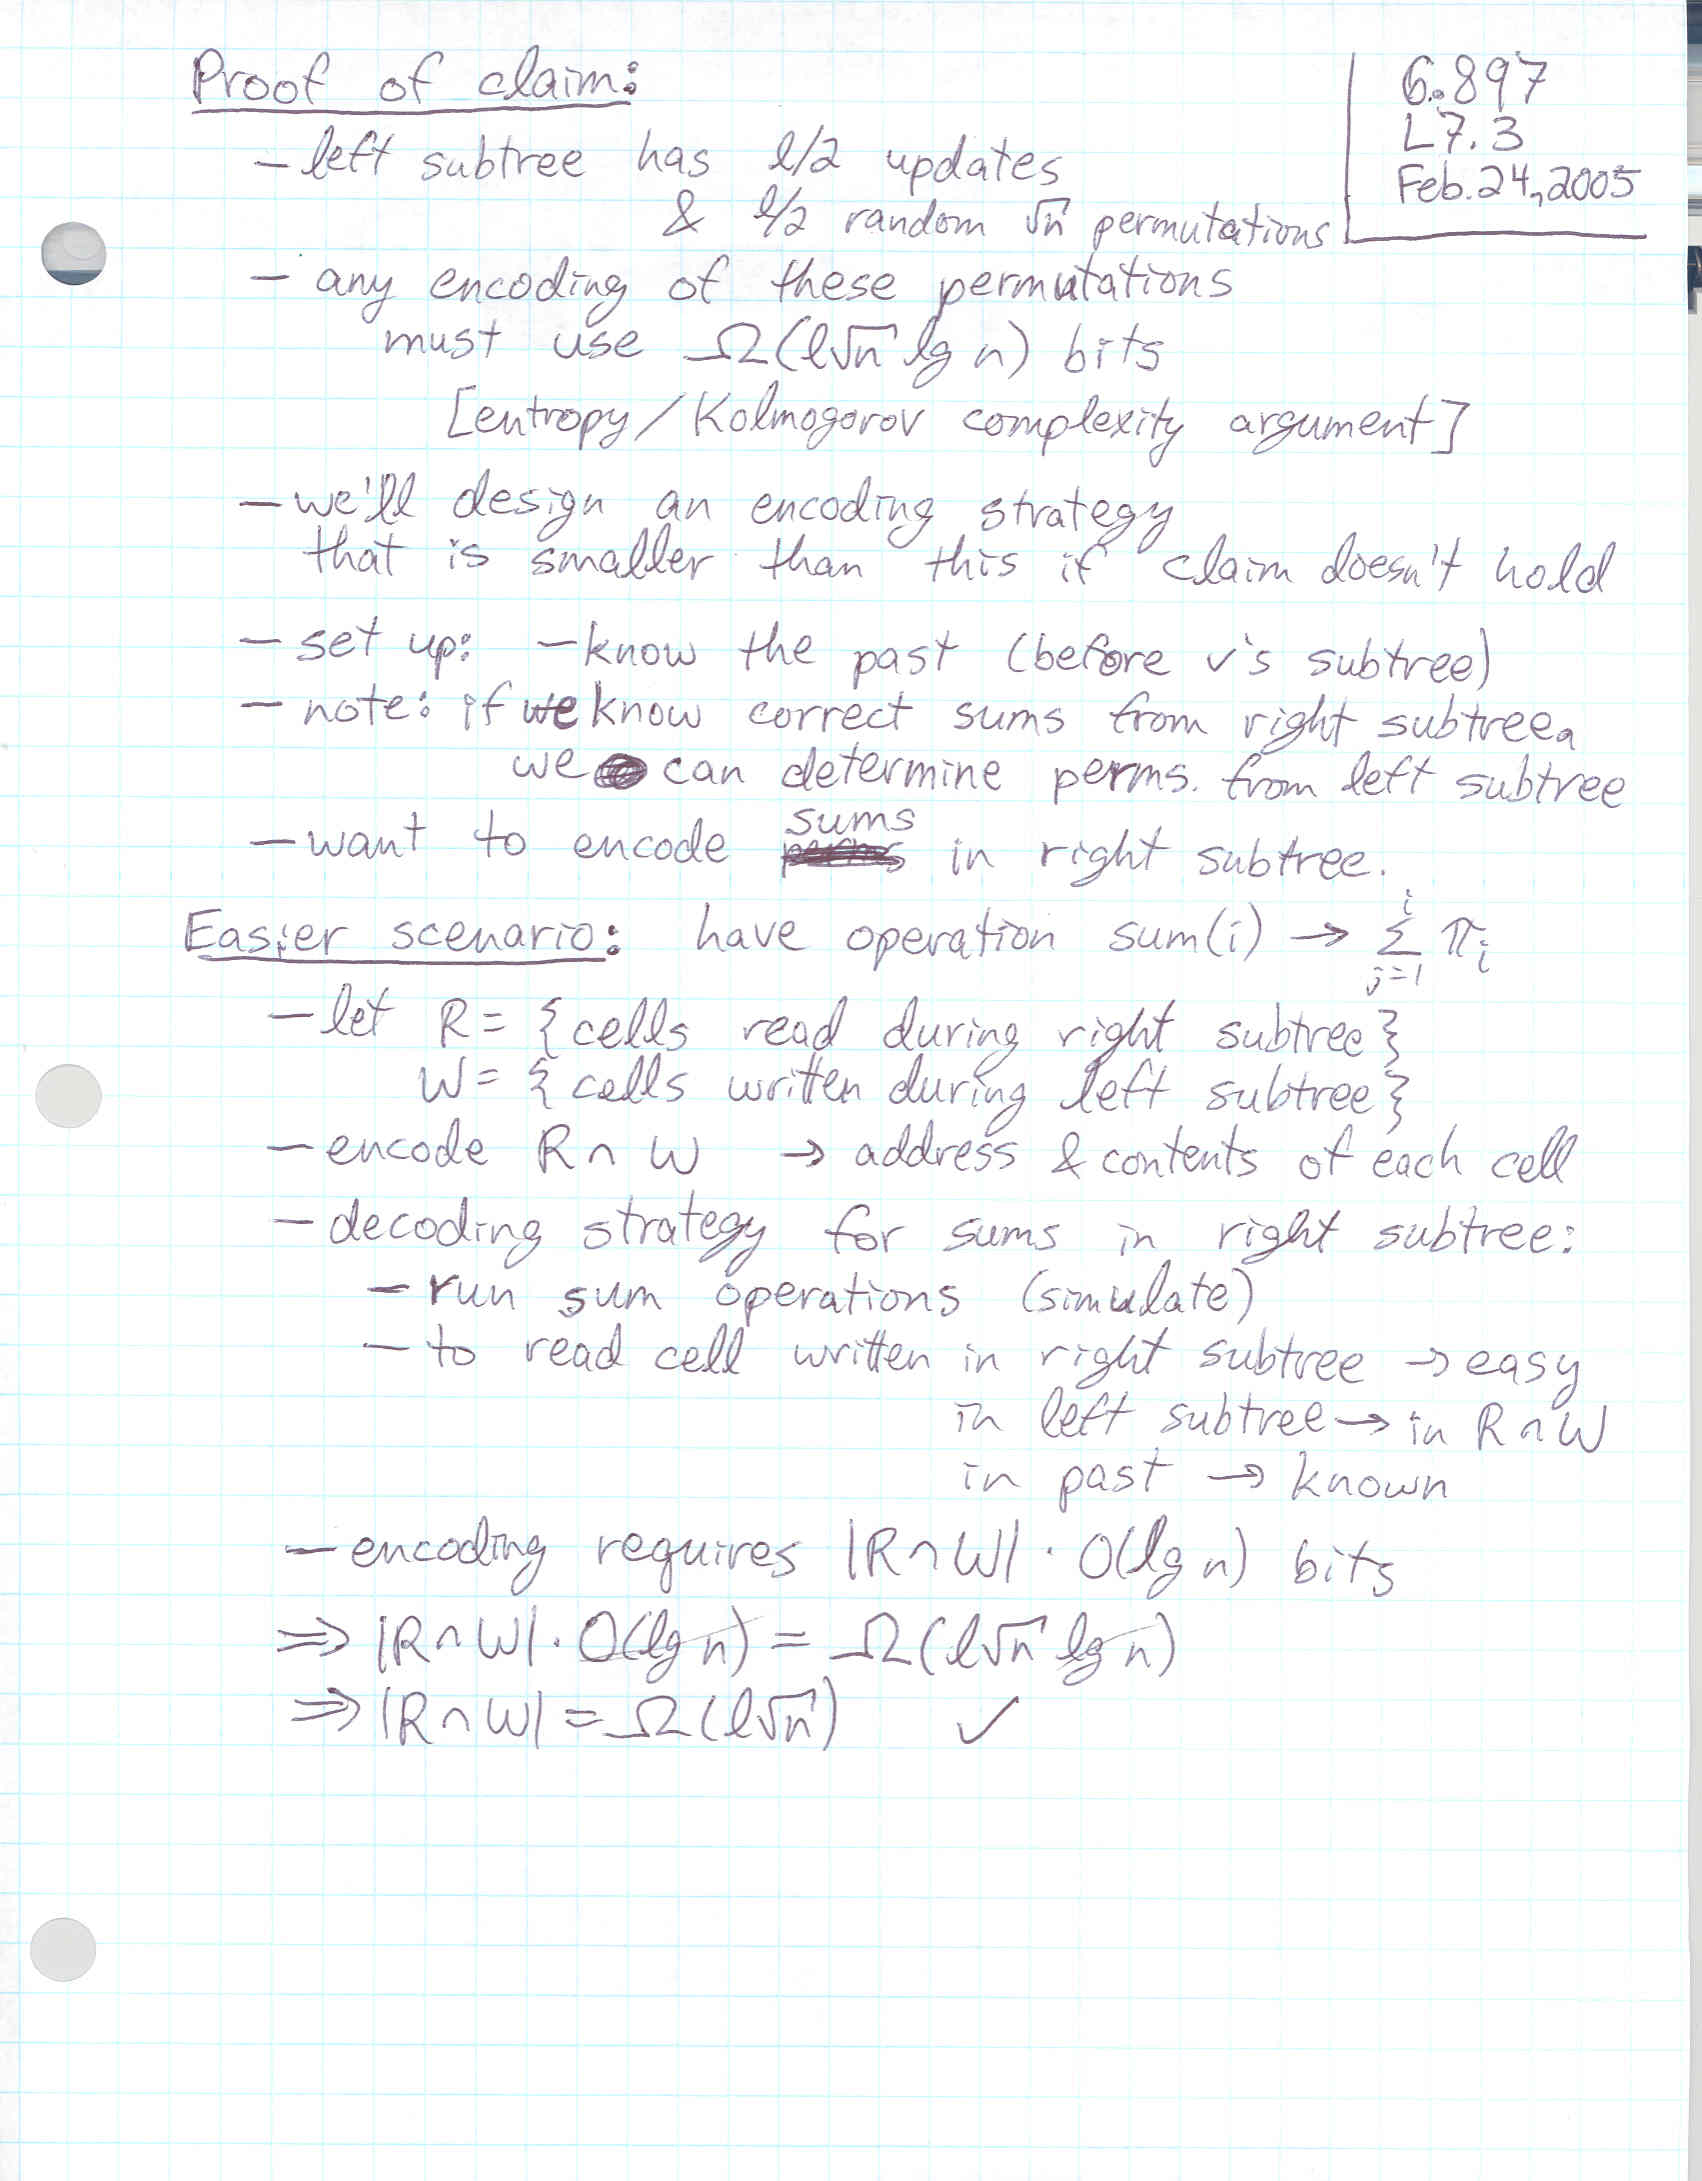 Proof of claim:
6.897
L7.3
Feb. 24, 2005
– left subtree has l/2 updates
& l/2 random √n permutations
– any encoding of these permutations
must use Ω(l√n lg n) bits
[entropy/Kolmogorov complexity argument]
– we'll design an encoding strategy
that is smaller than this if claim doesn't hold
– set up: – know the past (before v's subtree)
– note: if we know correct sums from right subtree,
we can determine perms. from left subtree
– want to encode sums in right subtree.
Easier scenario: have operation sum(i) → Σ_{j=1}^{i} π_i
– let R = {cells read during right subtree}
W = {cells written during left subtree}
– encode R ∩ W → address & contents of each cell
– decoding strategy for sums in right subtree:
– run sum operations (simulate)
– to read cell written in right subtree → easy
in left subtree → in R ∩ W
in past → known
– encoding requires |R ∩ W| · O(lg n) bits
⇒ |R ∩ W| · O(lg n) = Ω(l√n lg n)
⇒ |R ∩ W| = Ω(l√n) ✓